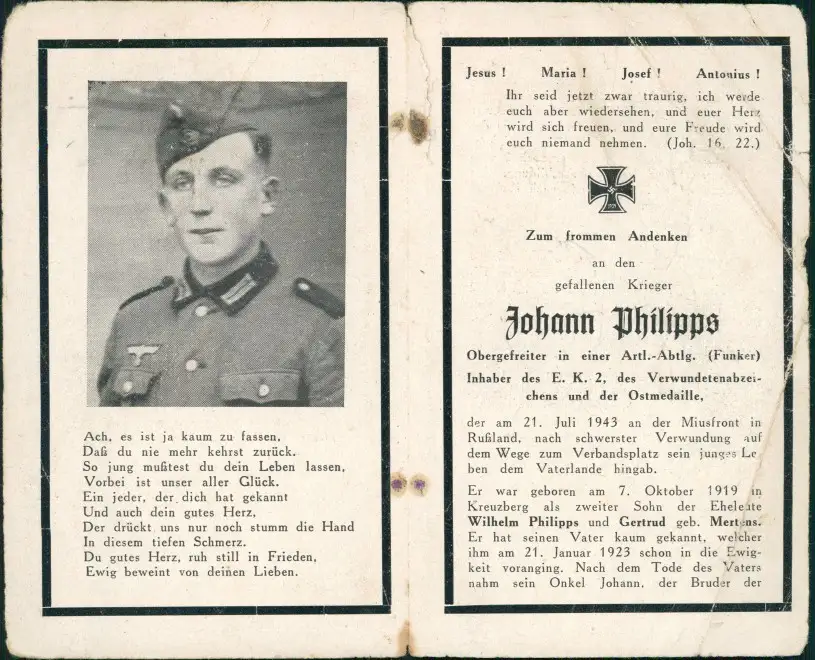 Ach, es ist ja kaum zu fassen,
Daß du nie mehr kehrst zurück.
So jung mußtest du dein Leben lassen,
Vorbei ist unser aller Glück.
Ein jeder, der dich hat gekannt
Und auch dein gutes Herz,
Der drückt uns nur noch stumm die Hand
In diesem tiefen Schmerz.
Du gutes Herz, ruh still in Frieden,
Ewig beweint von deinen Lieben.
Jesus ! Maria ! Josef ! Antonius !
Ihr seid jetzt zwar traurig, ich werde
euch aber wiedersehen, und euer Herz
wird sich freuen, und eure Freude wird
euch niemand nehmen. (Joh. 16, 22.)
Zum frommen Andenken
an den
gefallenen Krieger
Johann Philipps
Obergefreiter in einer Artl.-Abtlg. (Funker)
Inhaber des E. K. 2, des Verwundetenabzei-
chens und der Ostmedaille,
der am 21. Juli 1943 an der Miusfront in
Rußland, nach schwerster Verwundung auf
dem Wege zum Verbandsplatz sein junges Le
ben dem Vaterlande hingab.
Er war geboren am 7. Oktober 1919 in
Kreuzberg als zweiter Sohn der Eheleute
Wilhelm Philipps und Gertrud geb. Mertens.
Er hat seinen Vater kaum gekannt, welcher
ihm am 21. Januar 1923 schon in die Ewig-
keit voranging. Nach dem Tode des Vaters
nahm sein Onkel Johann, der Bruder der